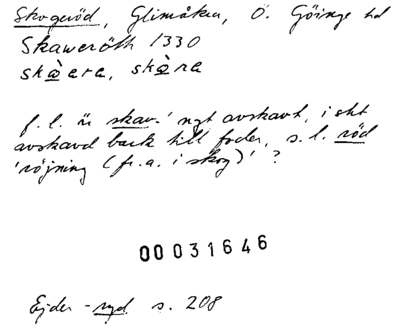 Skogeröd, Glimåkra, Ö. Göinge hd
Skaweröth 1330
skæ̀ara, skæ̀ra
f. l. är skav- 'ngt avskavt, i sht
avskavd bark till foder, s. l. röd
'röjning (fr. a. i skog)' ?
00031646
Ejder -ryd s. 208